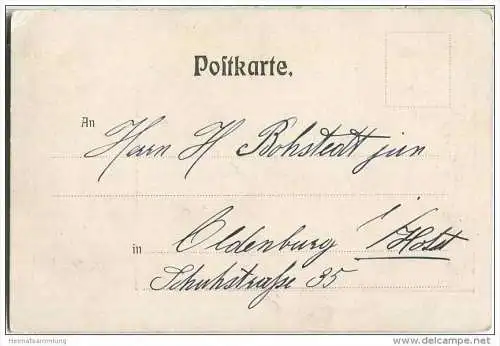 Poſtkarte.
An
Herrn H Bohstedt jun
in Oldenburg i/Holst
Schuhstraße 35
Heimatsammlung
www.delcampe.net